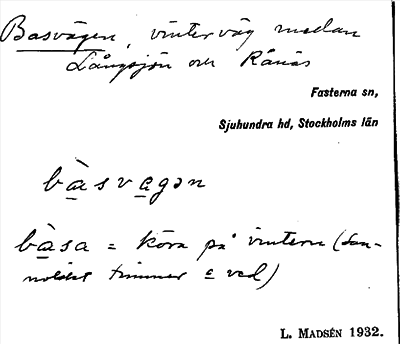 Basvägen, vinterväg mellan
Långsjön och Rånäs
Fasterna sn,
Sjuhundra hd, Stockholms län
bàsvagən
bàsa = köra på vintern (san-
nolikt timmer o ved)
L. MADSÉN 1932.